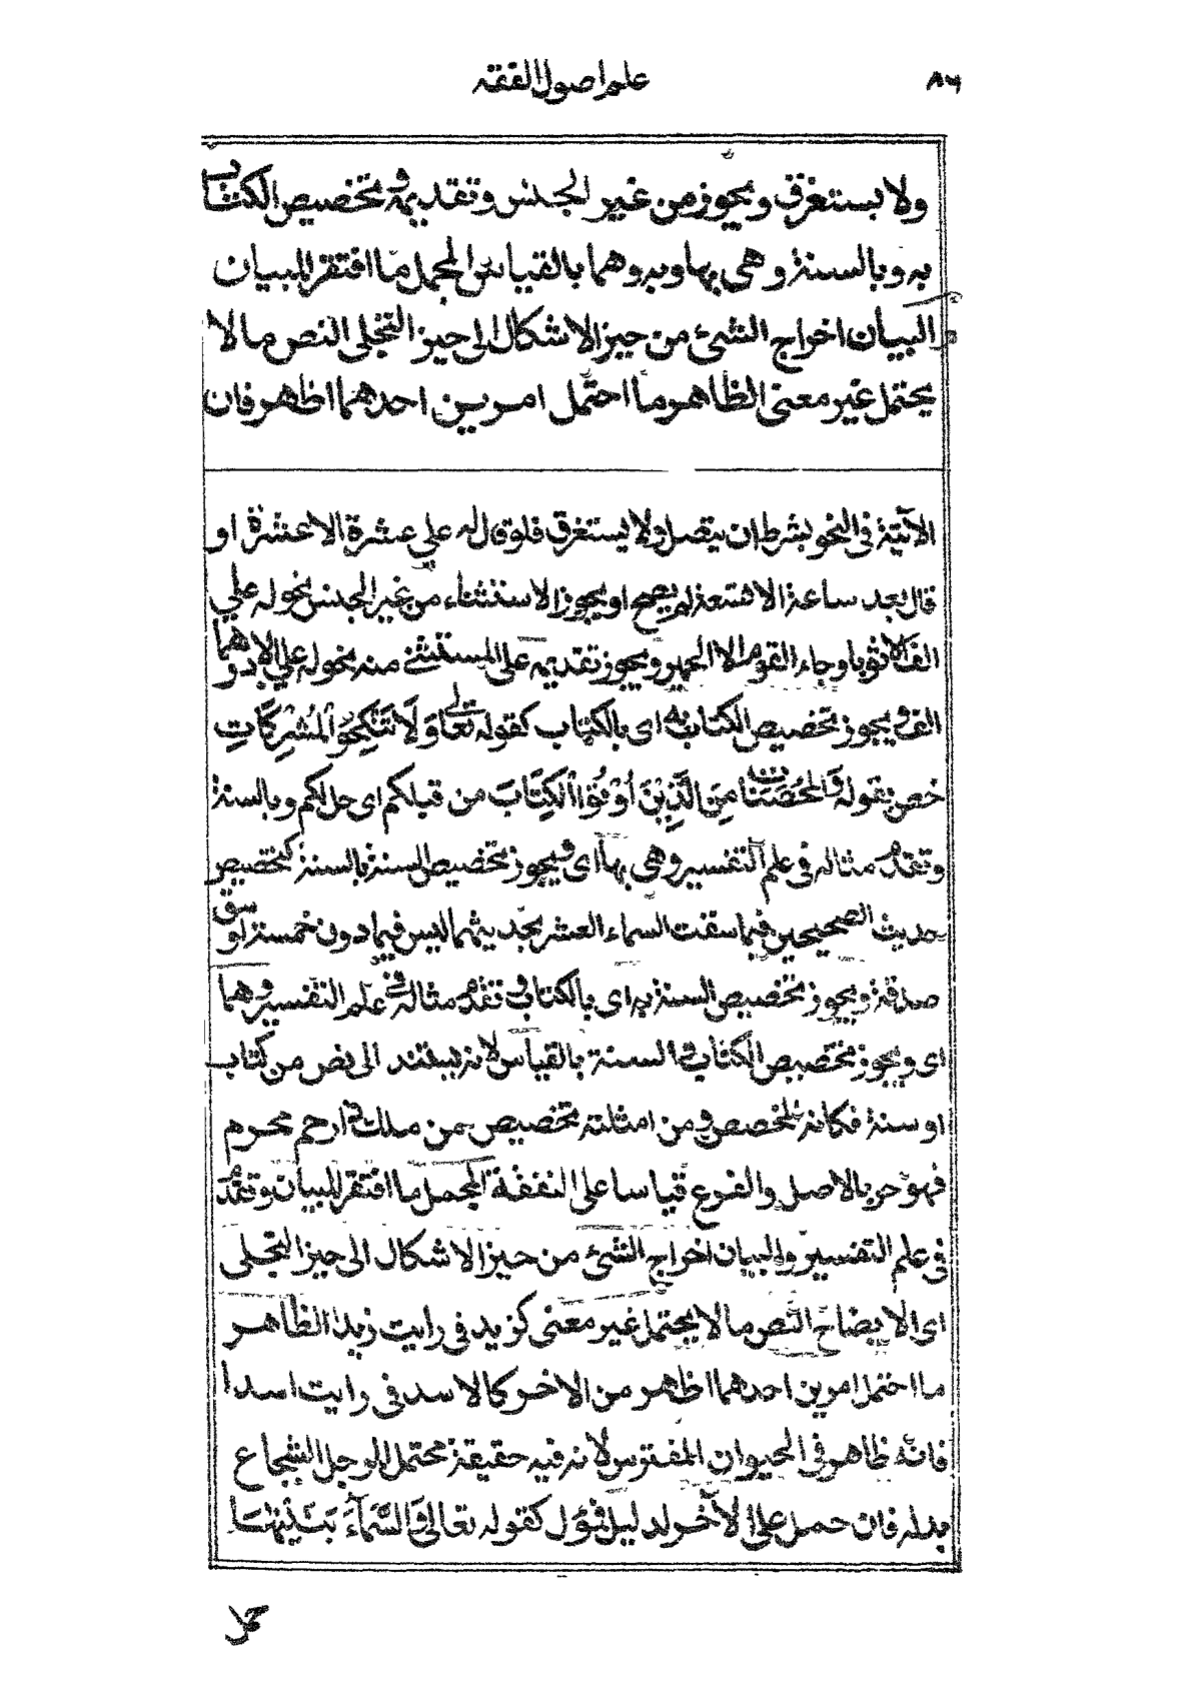 علم اصول الفقه ٨٦
ولا يستغرق ويجوز من غير الجنس وتقديمه وتخصيص الكتاب
به وبالسنة وهي بها وبه وهما بالقياس المجمل ما افتقر للبيان
البيان اخراج الشئ من حيز الاشكال الى حيز التجلى النص ما لا
يحتمل غير معنى الظاهر ما احتمل امرين احدهما اظهر فان
الآتية في النحو بشرط ان يتصل ولا يستغرق فلو قال له علي عشرة الا عشرة او
قال بعد ساعة الا تسعة لم يصح او يجوز الاستثناء من غير الجنس نحو له علي
الف الا ثوبا وجاء القوم الا الحمير ويجوز تقديمه على المستثنى منه نحو له علي الا درهما
الف ويجوز تخصيص الكتاب به اى بالكتاب كقوله تعالى وَلَا تَنْكِحُوا الْمُشْرِكَاتِ
خص بقوله وَالْمُحْصَنَاتُ مِنَ الَّذِيْنَ اُوْتُوا الْكِتَابَ من قبلكم اى حل لكم وبالسنة
وتقدم مثاله في علم التفسير وهي بها اى ويجوز تخصيص السنة بالسنة كتخصيص
حديث الصحيحين فيما سقت السماء العشر بحديثهما ليس فيما دون خمسة اوسق
صدقة ويجوز تخصيص السنة به اى بالكتاب وتقدم مثاله في علم التفسير وهما
اى ويجوز تخصيص الكتاب والسنة بالقياس لانه يستند الى نص من كتاب
او سنة فكانه المخصص ومن امثلته تخصيص من ملك ذا رحم محرم
فهو حر بالاصل والفرع قياسا على النفقة المجمل ما افتقر للبيان وتقدم
في علم التفسير والبيان اخراج الشئ من حيز الاشكال الى حيز التجلى
اى الايضاح النص ما لا يحتمل غير معنى كزيد فى رايت زيدا الظاهر
ما احتمل امرين احدهما اظهر من الاخر كالاسد فى رايت اسدا
فانه ظاهر فى الحيوان المفترس لانه فيه حقيقة محتمل للرجل الشجاع
بدله فان حمل على الآخر لدليل فمؤل كقوله تعالى وَالسَّمَاءَ بَنَيْنٰهَا